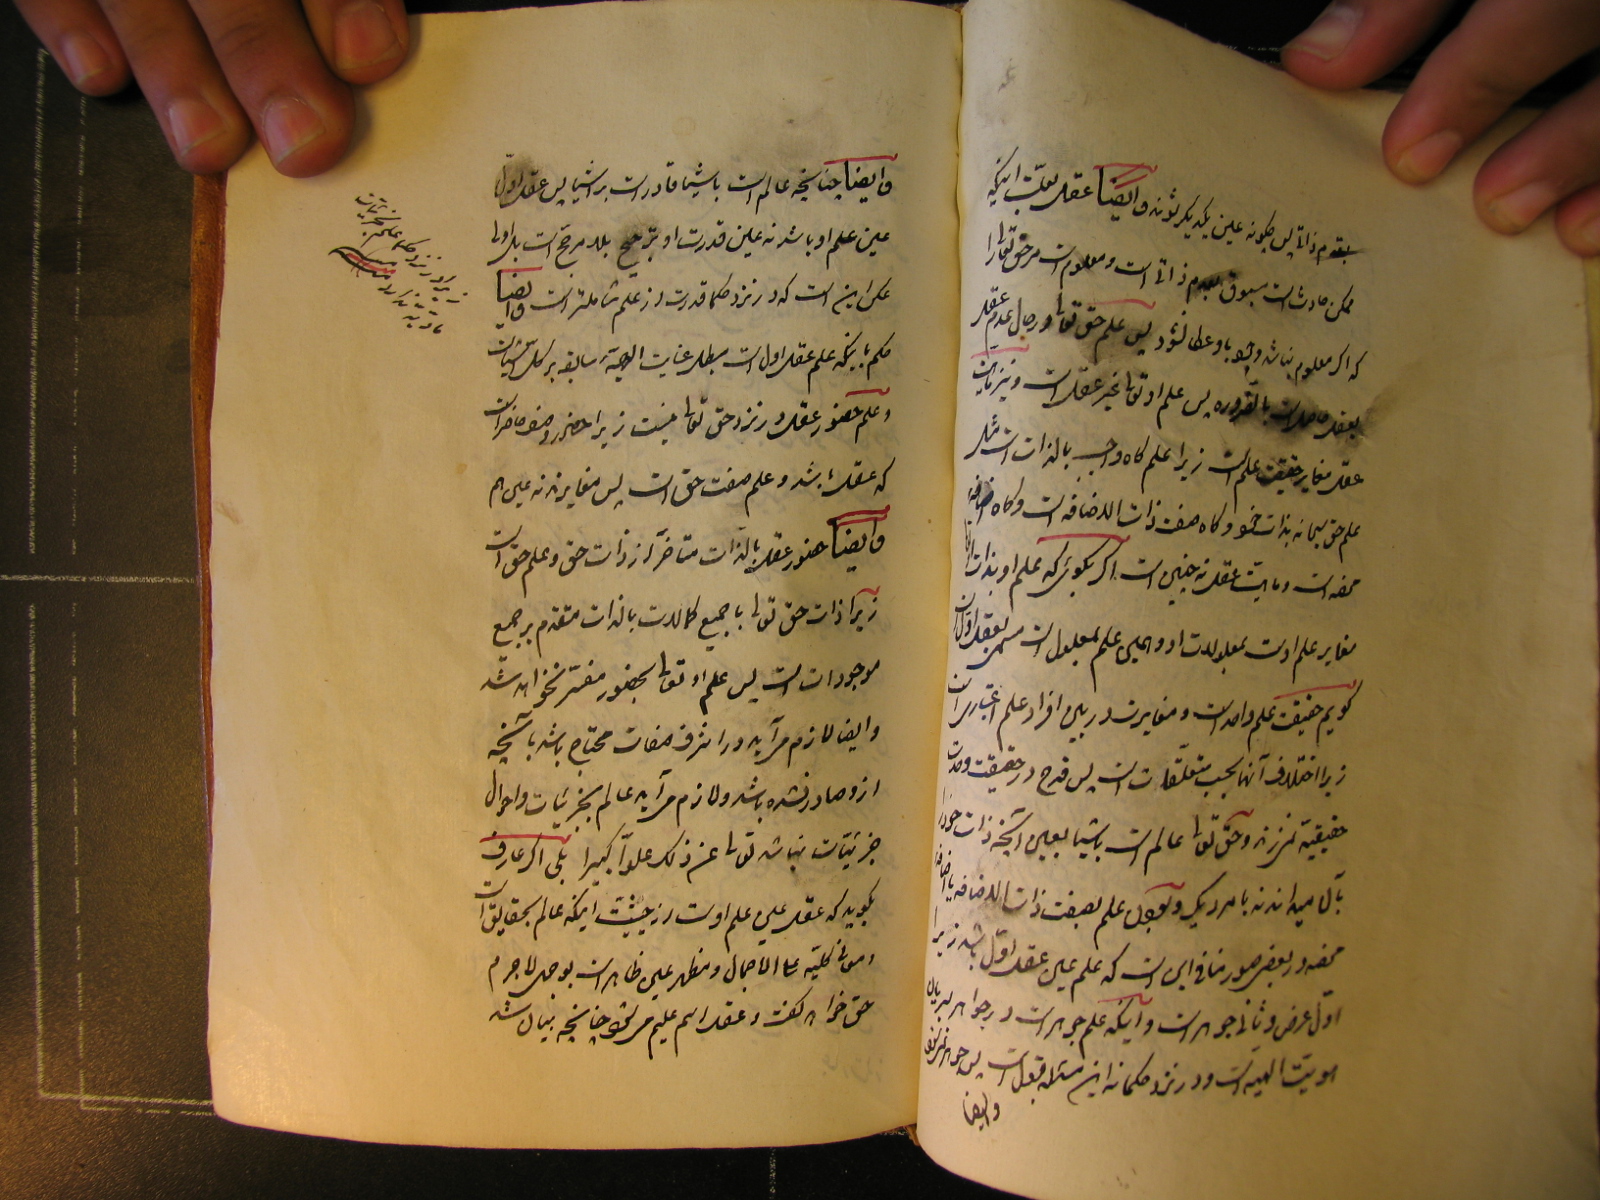 بقدم ذاتی پس چگونه عین یکدیگر شوند و ایضا عقل بعلت اینکه
ممکن حادث است مسبوق بعدم ذاتی است و معلوم است مر حق تعالی را
که اگر معلوم نباشد وجود باو عطا نشود پس علم حق تعالی در حال عدم عقل
بعقل حاصل است بالضروره پس علم او تعالی غیر عقل است و نیز ماهیت
عقل مغایر حقیقت علم است زیرا علم گاه واجب بالذات است مثل
علم حق سبحانه بذات خود و گاه صفت ذات الاضافه است و گاه اضافه
محضه است و ماهیت عقل نه چنین است اگر بگوئی که علم او بذات او
مغایر علم اوست بمعلولات او و همین علم بمعلول است مسمی بعقل اول
گویم حقیقت علم واحد است و مغایرت در بین افراد علم اعتباری است
زیرا اختلاف آنها بحسب متعلقات است پس قدح در حقیقت وحدت
حقیقیه نمیزند و حق تعالی عالم است باشیا بعین آنچه ذات خود را
بآن میداند نه بامر دیگر و بودن علم بصفت ذات الاضافه یا اضافه
محضه در بعضی صور منافی این است که علم عین عقل اول باشد زیرا
اول عرض و ثانی جوهر است و اینکه علم جوهر است در جواهر بسریان
هویت الهیه است و در نزد حکما نه این مسئله قبول است پس جوهر
و ایضا
و ایضا چنانچه عالم است باشیا قادر است بر اشیا پس عقل اول
عین علم او باشد نه عین قدرت او ترجیح بلا مرجح است بل اولی
عکس این است که در نزد حکما قدرت از علم شاملتر است و ایضا
حکم باینکه علم عقل اول است مبطل عنایت الهیه سابقه بر کل شیئیات
و علم حضور عقل در نزد حق تعالی نیست زیرا حضور وصف حاضر است
که عقل باشد و علم صفت حق است پس مغایرند نه عین هم
و ایضا حضور عقل بالذات متاخر از ذات حق و علم حق است
زیرا ذات حق تعالی با جمیع کمالات بالذات متقدم بر جمیع
موجودات است پس علم او تعالی بحضور مفسر نخواهد شد
و ایضا لازم می‌آید در اشرف صفات محتاج باشد بآنچه
ازو صادر شده باشد و لازم می‌آید عالم بجزئیات و احوال
جزئیات نباشد تعالی عن ذلک علوا کبیرا بلی اگر عارف
بگوید که عقل عین علم اوست از حیثیت اینکه عالم بحقایق است
و معانی کلیه علی الاجمال و مظهر عین ظاهر است بوجهی لاجرم
حق خواهد گفت و عقل اسم علیم می‌شود چنانچه بیان شد
زیرا در نزد حکما علم بجزئیات
مادیه ندارد